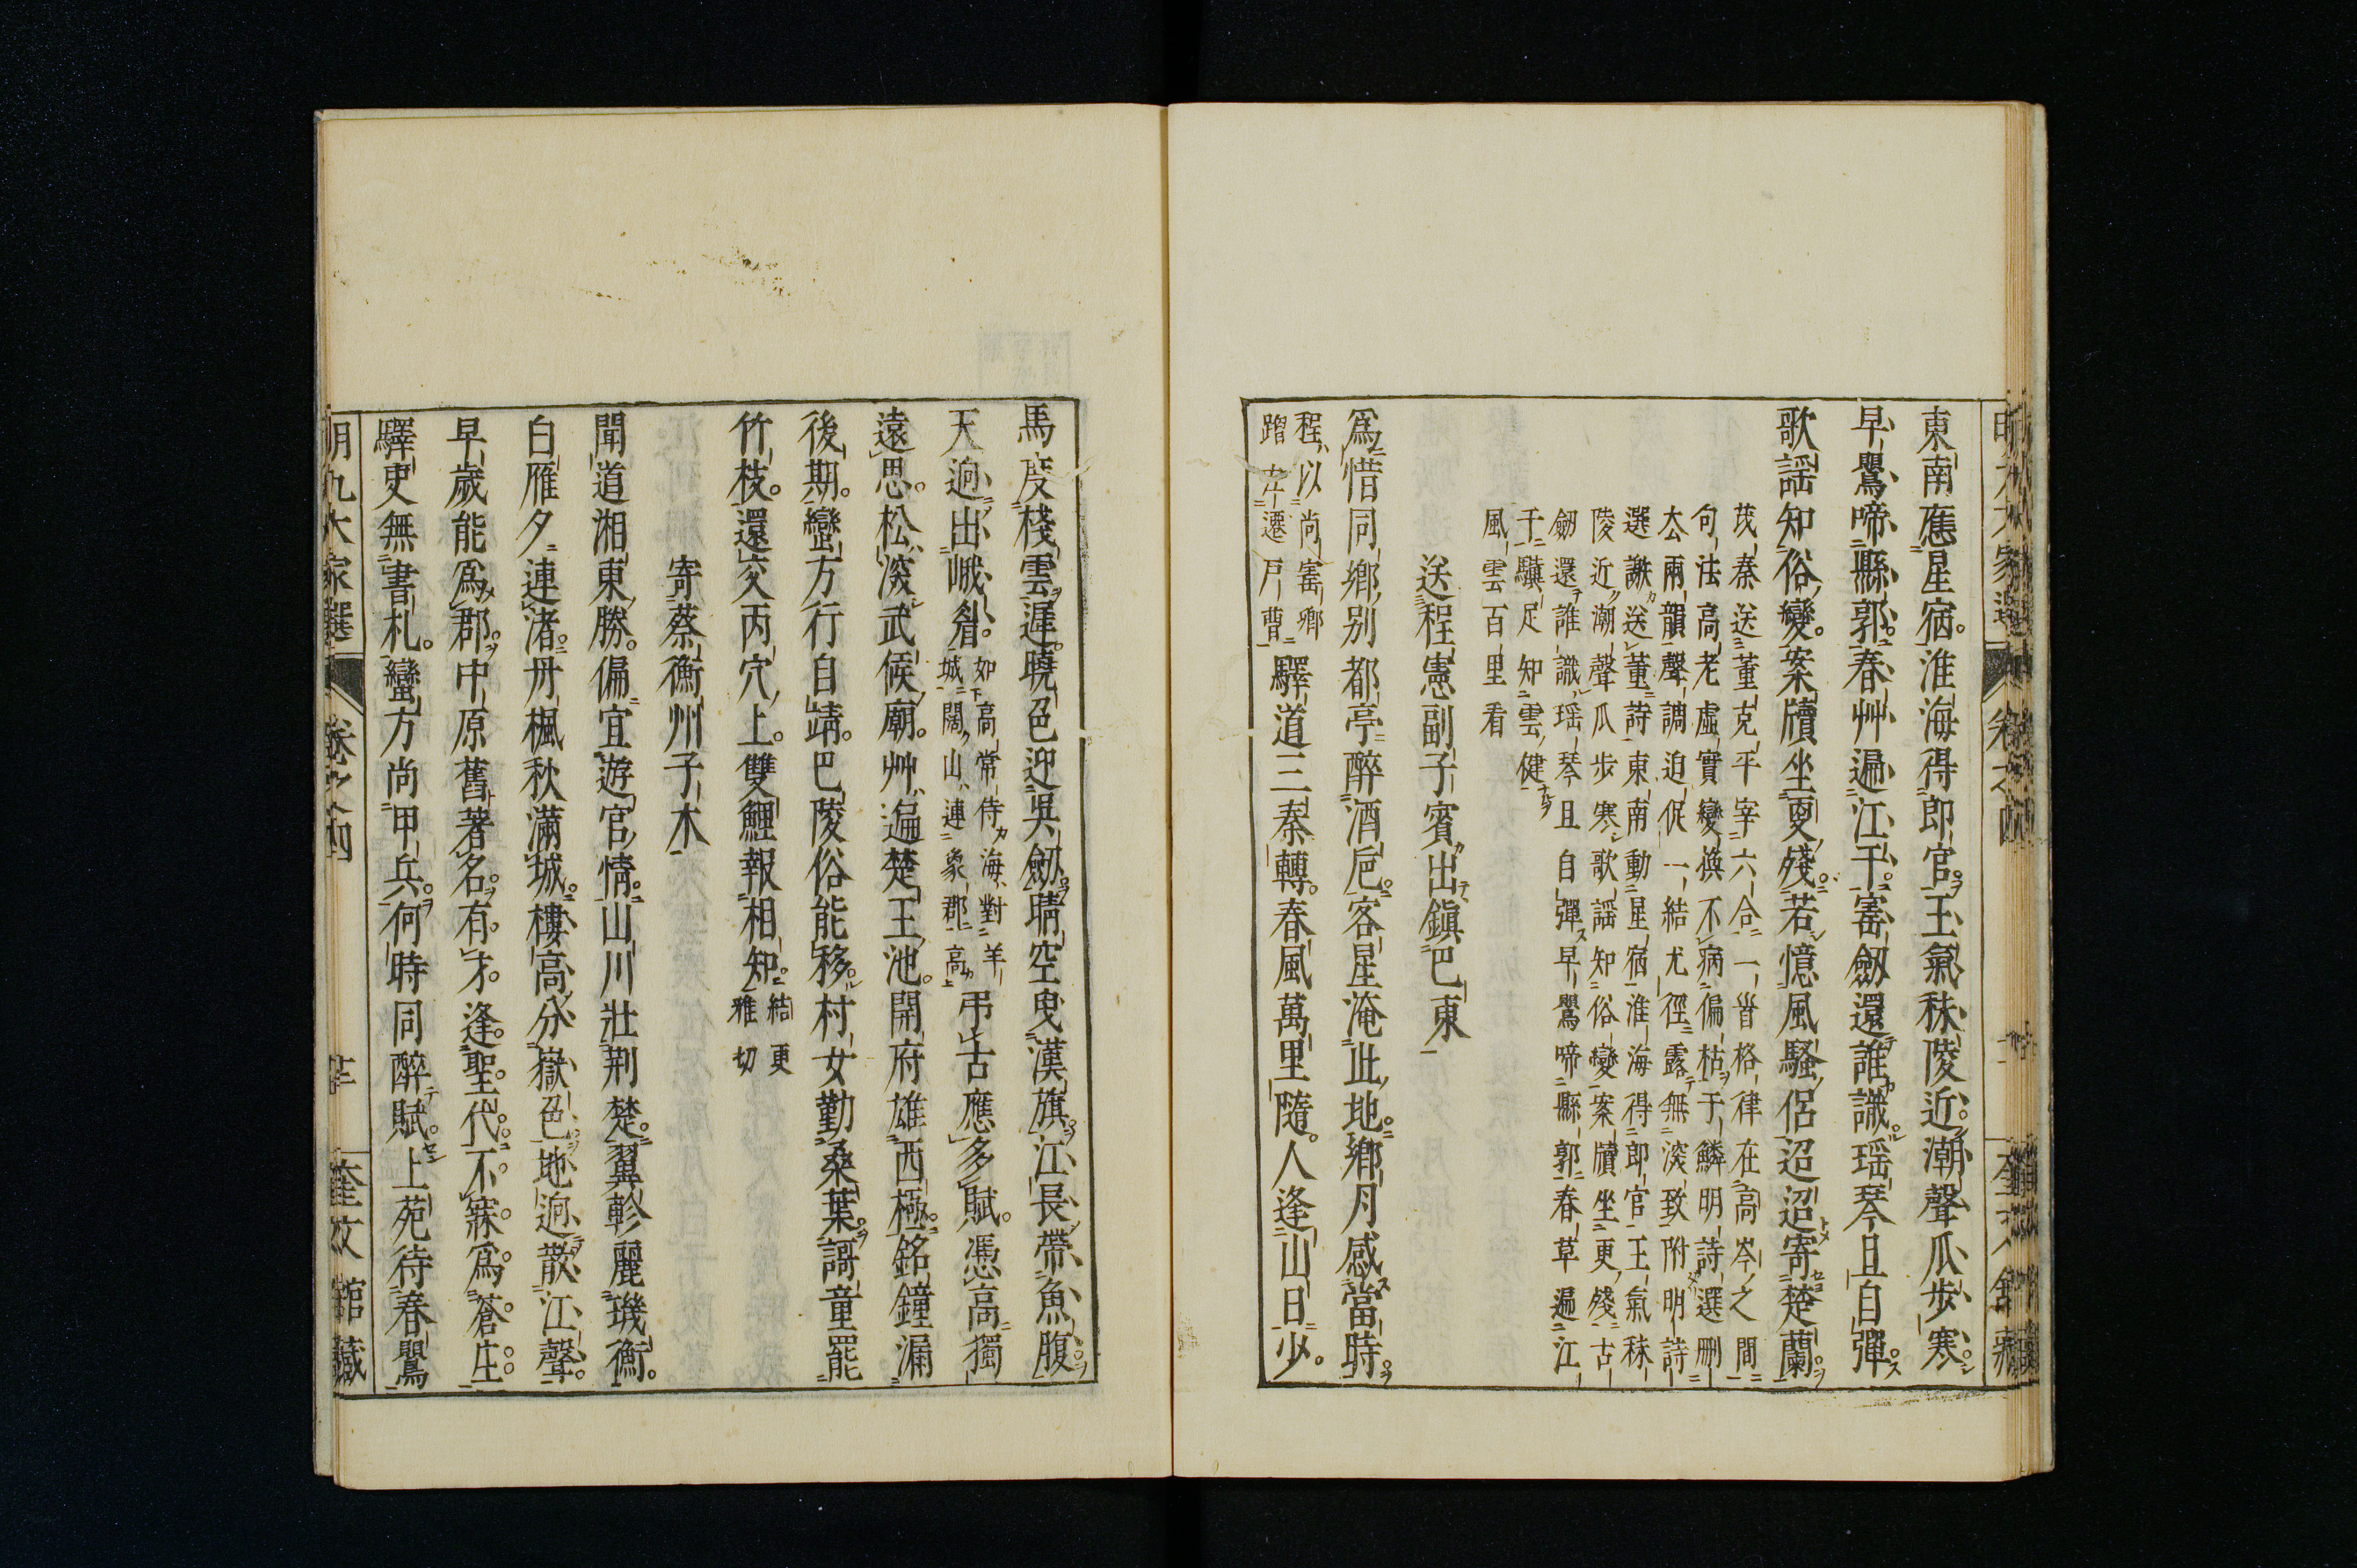 東南應星宿淮海得郎官王氣秣陵近潮聲瓜步寒
早鸎啼縣郭春艸遍江干寄劒還誰識瑶琴且自彈
歌謡知俗變案牘坐更殘若憶風騷侣迢迢寄楚蘭
茂秦送董克平宰六合一首格律在高岑之間
句法高老虛實變換不病偏枯于鱗明詩選刪
太兩韻聲調迫促一結尤徑露無深致附明詩
選謝送董詩東南動星宿淮海得郎官王氣秣
陵近潮聲瓜步寒歌謡知俗變案牘坐更殘古
劒還誰識瑶琴且自彈早鸎啼縣郭春草遍江
干驥足知雲健
風雲百里看
送程憲副子賓出鎮巴東
爲惜同鄕别都亭醉酒巵客星淹此地鄕月感當時
程以尚寄鄕
遷尸曹
驛道三秦轉春風萬里隨人逢山日少
馬度棧雲遲曉色迎吳劒晴空曳漢旗江長帶魚腹
天逈出峨眉
如高常侍海對羊
城闊山連象郡高
弔古應多賦憑高獨
遠思松深武候廟艸遍楚王池開府雄西極銘鐘漏
後期蠻方行自靖巴陵俗能移村女勤桑葉謌童罷
竹枝還交丙穴上雙鯉報相知
結更
雅切
寄蔡衡州子木
聞道湘東勝偏宜遊官情山川壯荆楚翼軫麗璣衡
白雁夕連渚丹楓秋滿城樓高分嶽色地逈散江聲
早歲能爲郡中原舊著名有才逢聖代不寐爲蒼生
驛吏無書札蠻方尚甲兵何時同醉賦上苑待春鸎
明九大家選
卷之四
奎文館藏